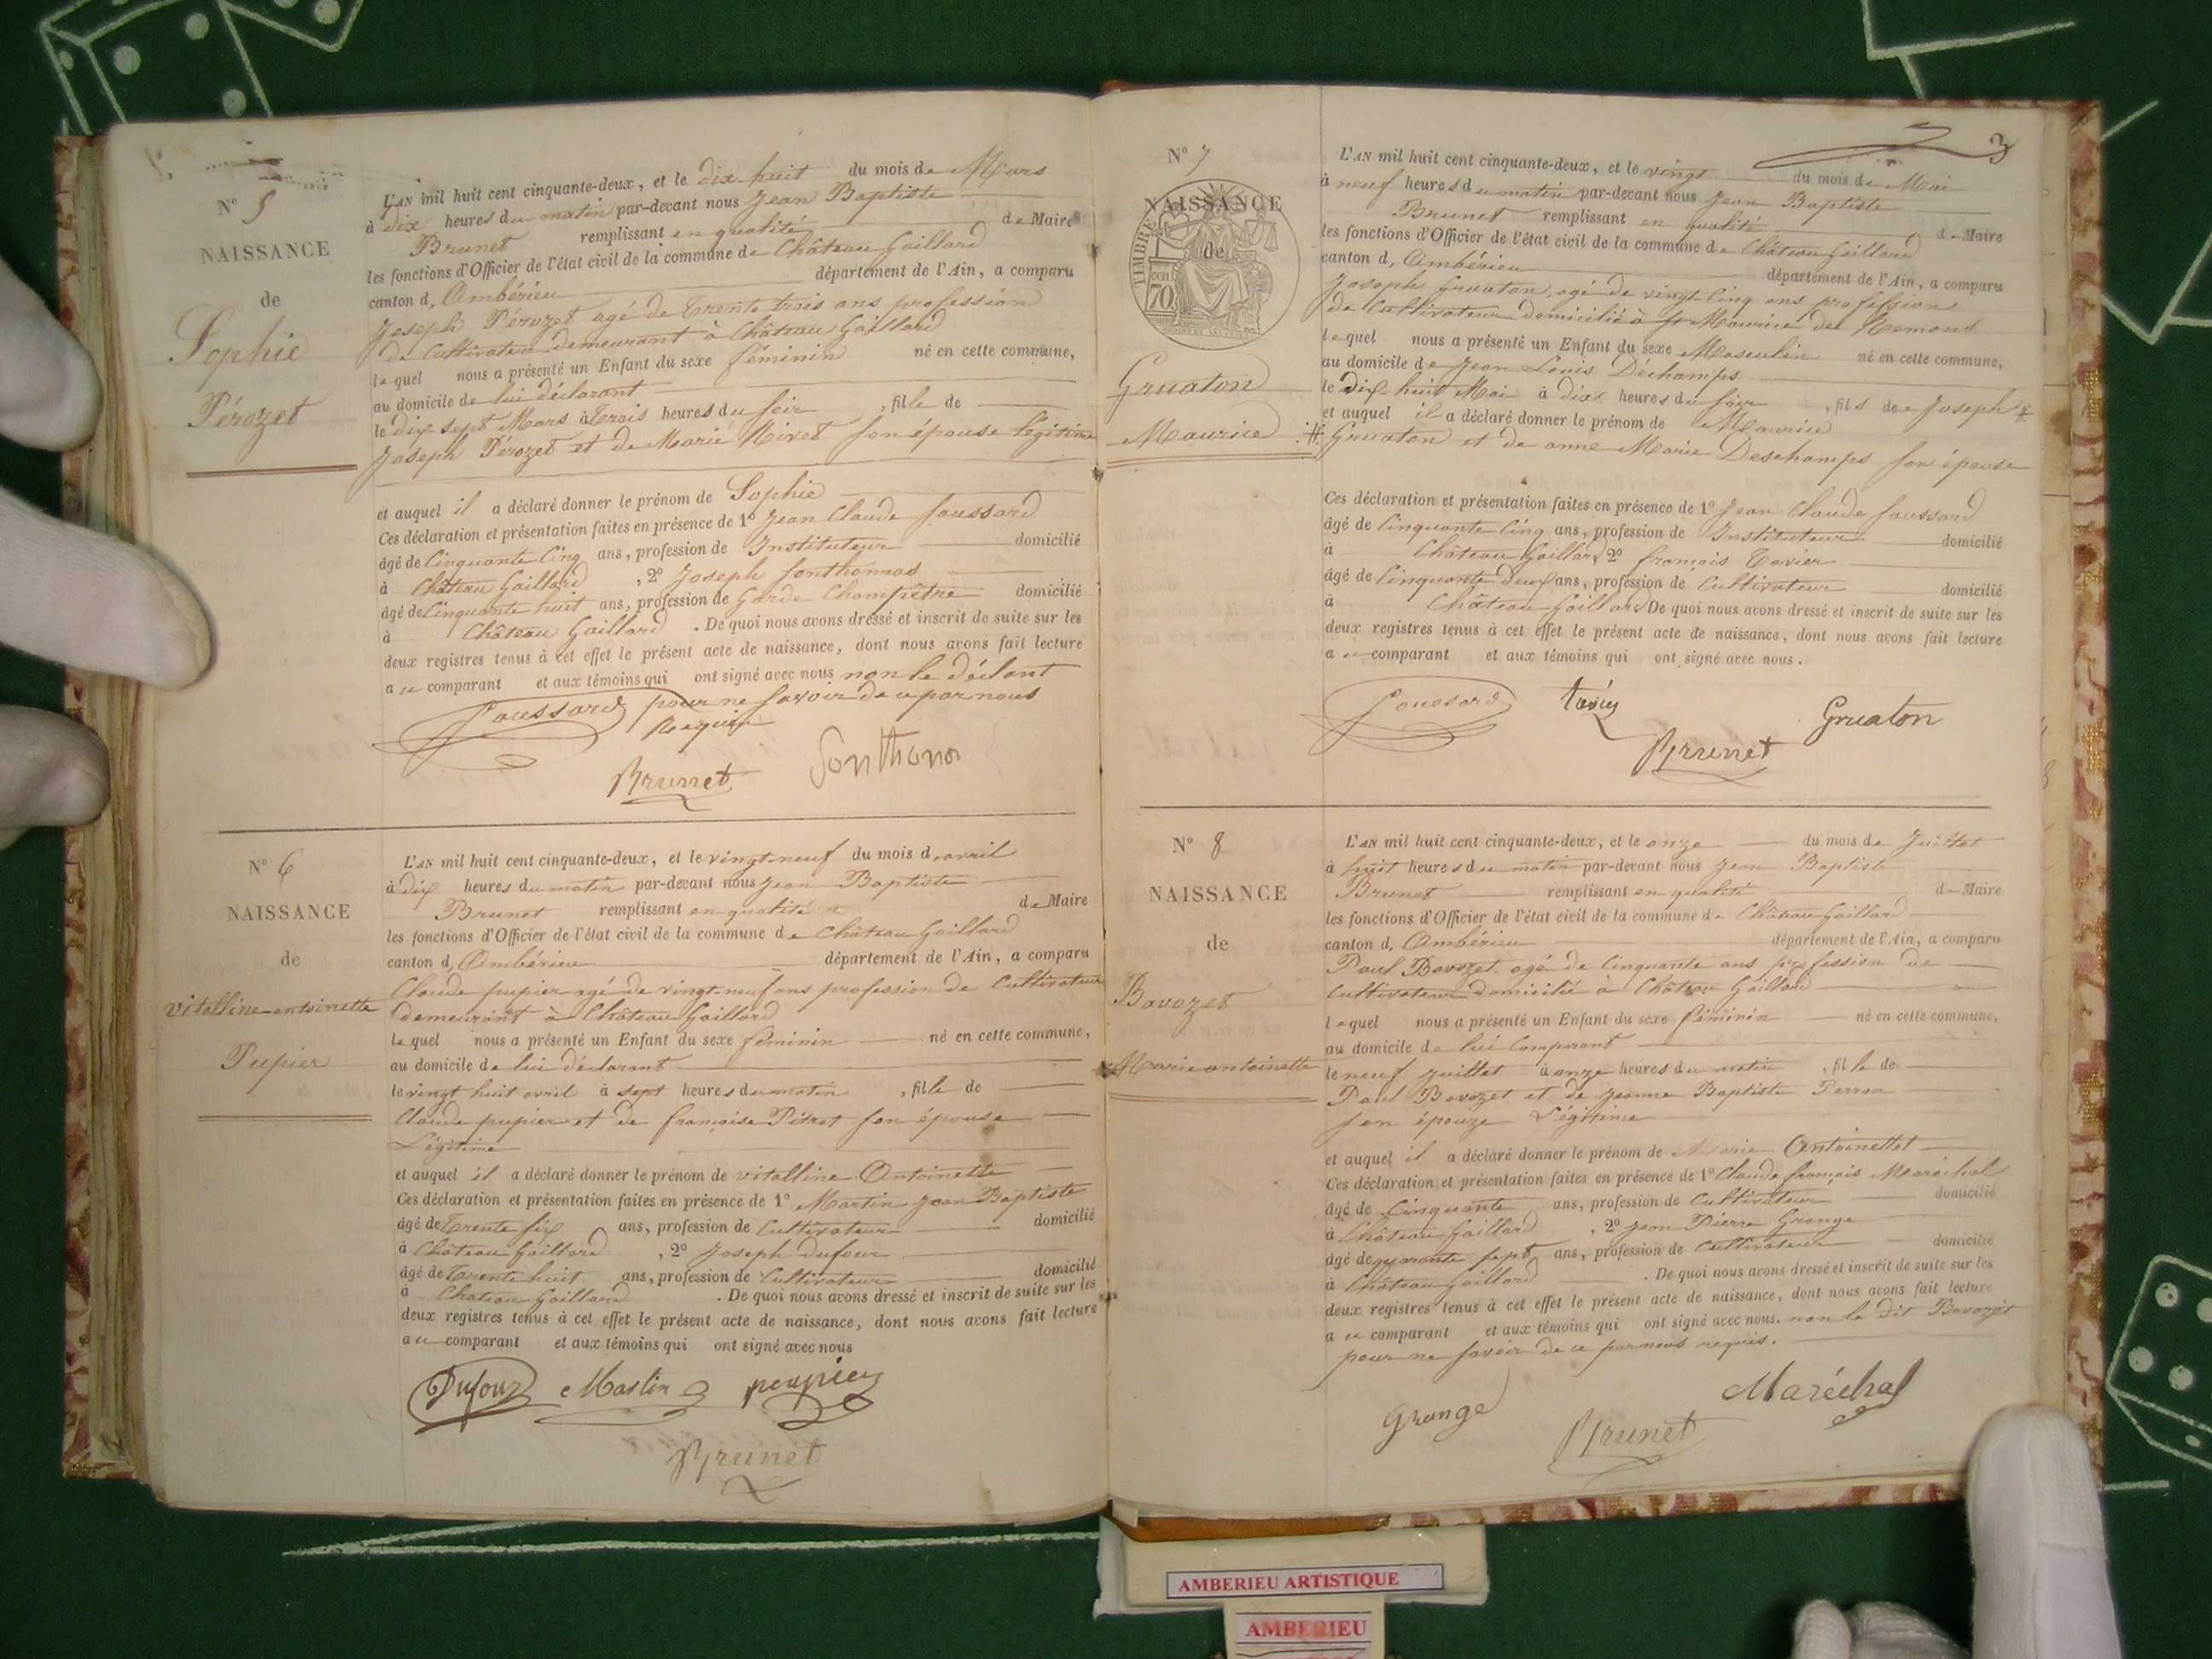 N° 5
NAISSANCE
de
Sophie
Pérozet
L'AN mil huit cent cinquante-deux, et le dix-huit du mois de Mars
à dix heures du matin par-devant nous Jean Baptiste
Brunet remplissant en qualité de Maire
les fonctions d'Officier de l'état civil de la commune de Château Gaillard
canton d, Ambérieu département de l'Ain, a comparu
Joseph Pérozet agé de trente trois ans profession
de Cultivateur demeurant à Château Gaillard
lequel nous a présenté un Enfant du sexe féminin né en cette commune,
au domicile de lui déclarant
le dix sept Mars à trois heures du soir, fille de
Joseph Pérozet et de Marie Nivet son épouse légitime
et auquel il a déclaré donner le prénom de Sophie
Ces déclaration et présentation faites en présence de 1° Jean Claude Joussard
âgé de Cinquante Cinq ans, profession de Instituteur domicilié
à Château Gaillard, 2° Joseph Sonthonnas
âgé de Cinquante huit ans, profession de Garde Champêtre domicilié
à Château Gaillard. De quoi nous avons dressé et inscrit de suite sur les
deux registres tenus à cet effet le présent acte de naissance, dont nous avons fait lecture
au comparant et aux témoins qui ont signé avec nous non le déclant
Joussard pour ne savoir de ce par nous
Requis
Brunet Sonthona
N° 6
NAISSANCE
de
vitalline antoinette
Pupier
L'AN mil huit cent cinquante-deux, et le vingt-neuf du mois d, avril
à dix heures du matin par-devant nous Jean Baptiste
Brunet remplissant en qualité de Maire
les fonctions d'Officier de l'état civil de la commune de Château Gaillard
canton d, Ambérieu département de l'Ain, a comparu
Claude pupier agé de vingt-neuf ans profession de Cultivateur
demeurant à Château Gaillard
lequel nous a présenté un Enfant du sexe féminin né en cette commune,
au domicile de lui déclarant
le vingt huit avril à sept heures du matin, fille de
Claude pupier et de françoise Pitrat son épouse
Légitime
et auquel il a déclaré donner le prénom de vitalline Antoinette
Ces déclaration et présentation faites en présence de 1° Martin Jean Baptiste
âgé de trente six ans, profession de Cultivateur domicilié
à Château Gaillard, 2° Joseph Dufour
âgé de trente huit ans, profession de Cultivateur domicilié
à Château Gaillard. De quoi nous avons dressé et inscrit de suite sur les
deux registres tenus à cet effet le présent acte de naissance, dont nous avons fait lecture
au comparant et aux témoins qui ont signé avec nous
Dufour Martin pupier
Brunet
3
N° 7
NAISSANCE
de
TIMBRE
70 cent
Gruaton
Maurice
L'AN mil huit cent cinquante-deux, et le vingt du mois de Mai
à neuf heures du matin par-devant nous Jean Baptiste
Brunet remplissant en qualité de Maire
les fonctions d'Officier de l'état civil de la commune de Château Gaillard
canton d, Ambérieu département de l'Ain, a comparu
Joseph Gruaton, agé de vingt-cinq ans profession
de Cultivateur domicilié à St Maurice de Remens
lequel nous a présenté un Enfant du sexe Masculin né en cette commune,
au domicile de Jean Louis Déchamps
le dix-huit Mai à dix heures du soir, fils de Joseph #
et auquel il a déclaré donner le prénom de Maurice
# Gruaton et de anne Marie Deschamps son épouse
Ces déclaration et présentation faites en présence de 1° Jean Claude Joussard
âgé de Cinquante Cinq ans, profession de Instituteur domicilié
à Château Gaillard, 2° françois Tavier
âgé de Cinquante deux ans, profession de Cultivateur domicilié
à Château Gaillard De quoi nous avons dressé et inscrit de suite sur les
deux registres tenus à cet effet le présent acte de naissance, dont nous avons fait lecture
au comparant et aux témoins qui ont signé avec nous.
Joussard Gruaton
Brunet
N° 8
NAISSANCE
de
Bavozet
Marie antoinette
L'AN mil huit cent cinquante-deux, et le onze du mois de Juillet
à huit heures du matin par-devant nous Jean Baptiste
Brunet remplissant en qualité de Maire
les fonctions d'Officier de l'état civil de la commune de Château Gaillard
canton d, Ambérieu département de l'Ain, a comparu
Paul Bavozet agé de Cinquante ans profession de
Cultivateur domicilié à Château Gaillard
lequel nous a présenté un Enfant du sexe féminin né en cette commune,
au domicile de lui Comparant
le neuf Juillet à onze heures du matin, fille de
Paul Bavozet et de Jeanne Baptiste Perron
son épouze Légitime
et auquel il a déclaré donner le prénom de Marie Antoinettet
Ces déclaration et présentation faites en présence de 1° Claude françois Maréchal
âgé de Cinquante ans, profession de Cultivateur domicilié
à Château Gaillard, 2° Jean Pierre Grange
âgé de quarante sept ans, profession de Cultivateur domicilié
à Château Gaillard. De quoi nous avons dressé et inscrit de suite sur les
deux registres tenus à cet effet le présent acte de naissance, dont nous avons fait lecture
au comparant et aux témoins qui ont signé avec nous. non le dit Bavozet
pour ne savoir de ce par nous requis.
Grange Brunet Maréchal
AMBERIEU ARTISTIQUE
AMBERIEU